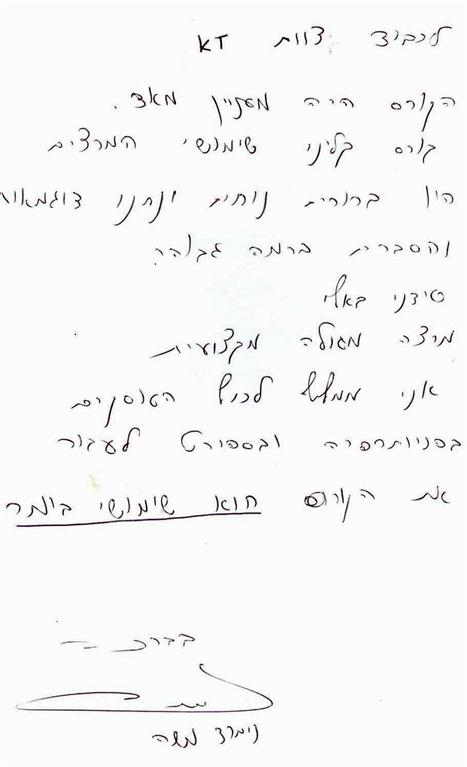 לכבוד צוות KT
הקורס היה מעניין מאד.
קורס קליני שימושי המרצים
היו ברורית נוחית ונתנו דוגמאות
והסברית ברמה גבוהה
סידני באלי
מרצה מעולה מקצועית
אני ממליץ לכול העוסקים
בפיזיותרפיה ובספורט לעבור
את הקורס הוא שימושי ביותר
בברכה
נימרד משה